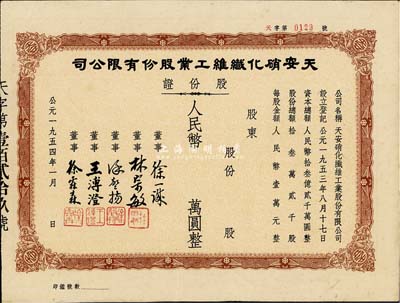 天字第 0129 號
天安硝化纖維工業股份有限公司
股份證
公司名稱 天安硝化纖維工業股份有限公司
設立登記 公元一九五三年八月十七日
資本總額 人民幣拾叁億貳千萬圓整
股份總額 拾叁萬貳千股
每股金額 人民幣壹萬元整
股東
股份 股
人民幣 萬圓整
董事 徐一
董事 林榮敏
董事
董事 王溥澄
董事 徐
公元一九五四年一月 日
天字第壹百貳拾玖號
印鑑號數